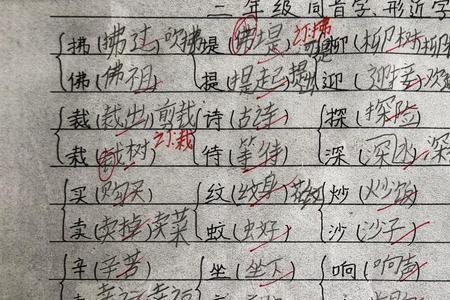 二年级同音字、形近字
拂(拂过)吹拂 堤( 堤) 柳(柳树)柳
佛(佛祖) 提(提起)提出 迎(迎接)欢迎
裁(裁出)剪裁 诗(古诗) 探(探险)
栽(栽树) 待(等待) 深(深水)深
买(购买) 纹(纹身) 炒(炒饭)
卖(卖掉)卖菜 蚊(蚊好) 沙(沙子)
辛(辛苦) 坐(坐下) 响(响声)